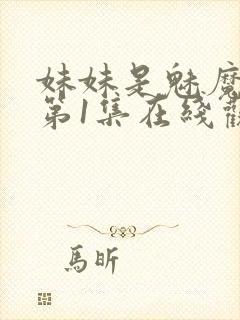 妹妹是魅魔
第1集在綫觀
馬昕